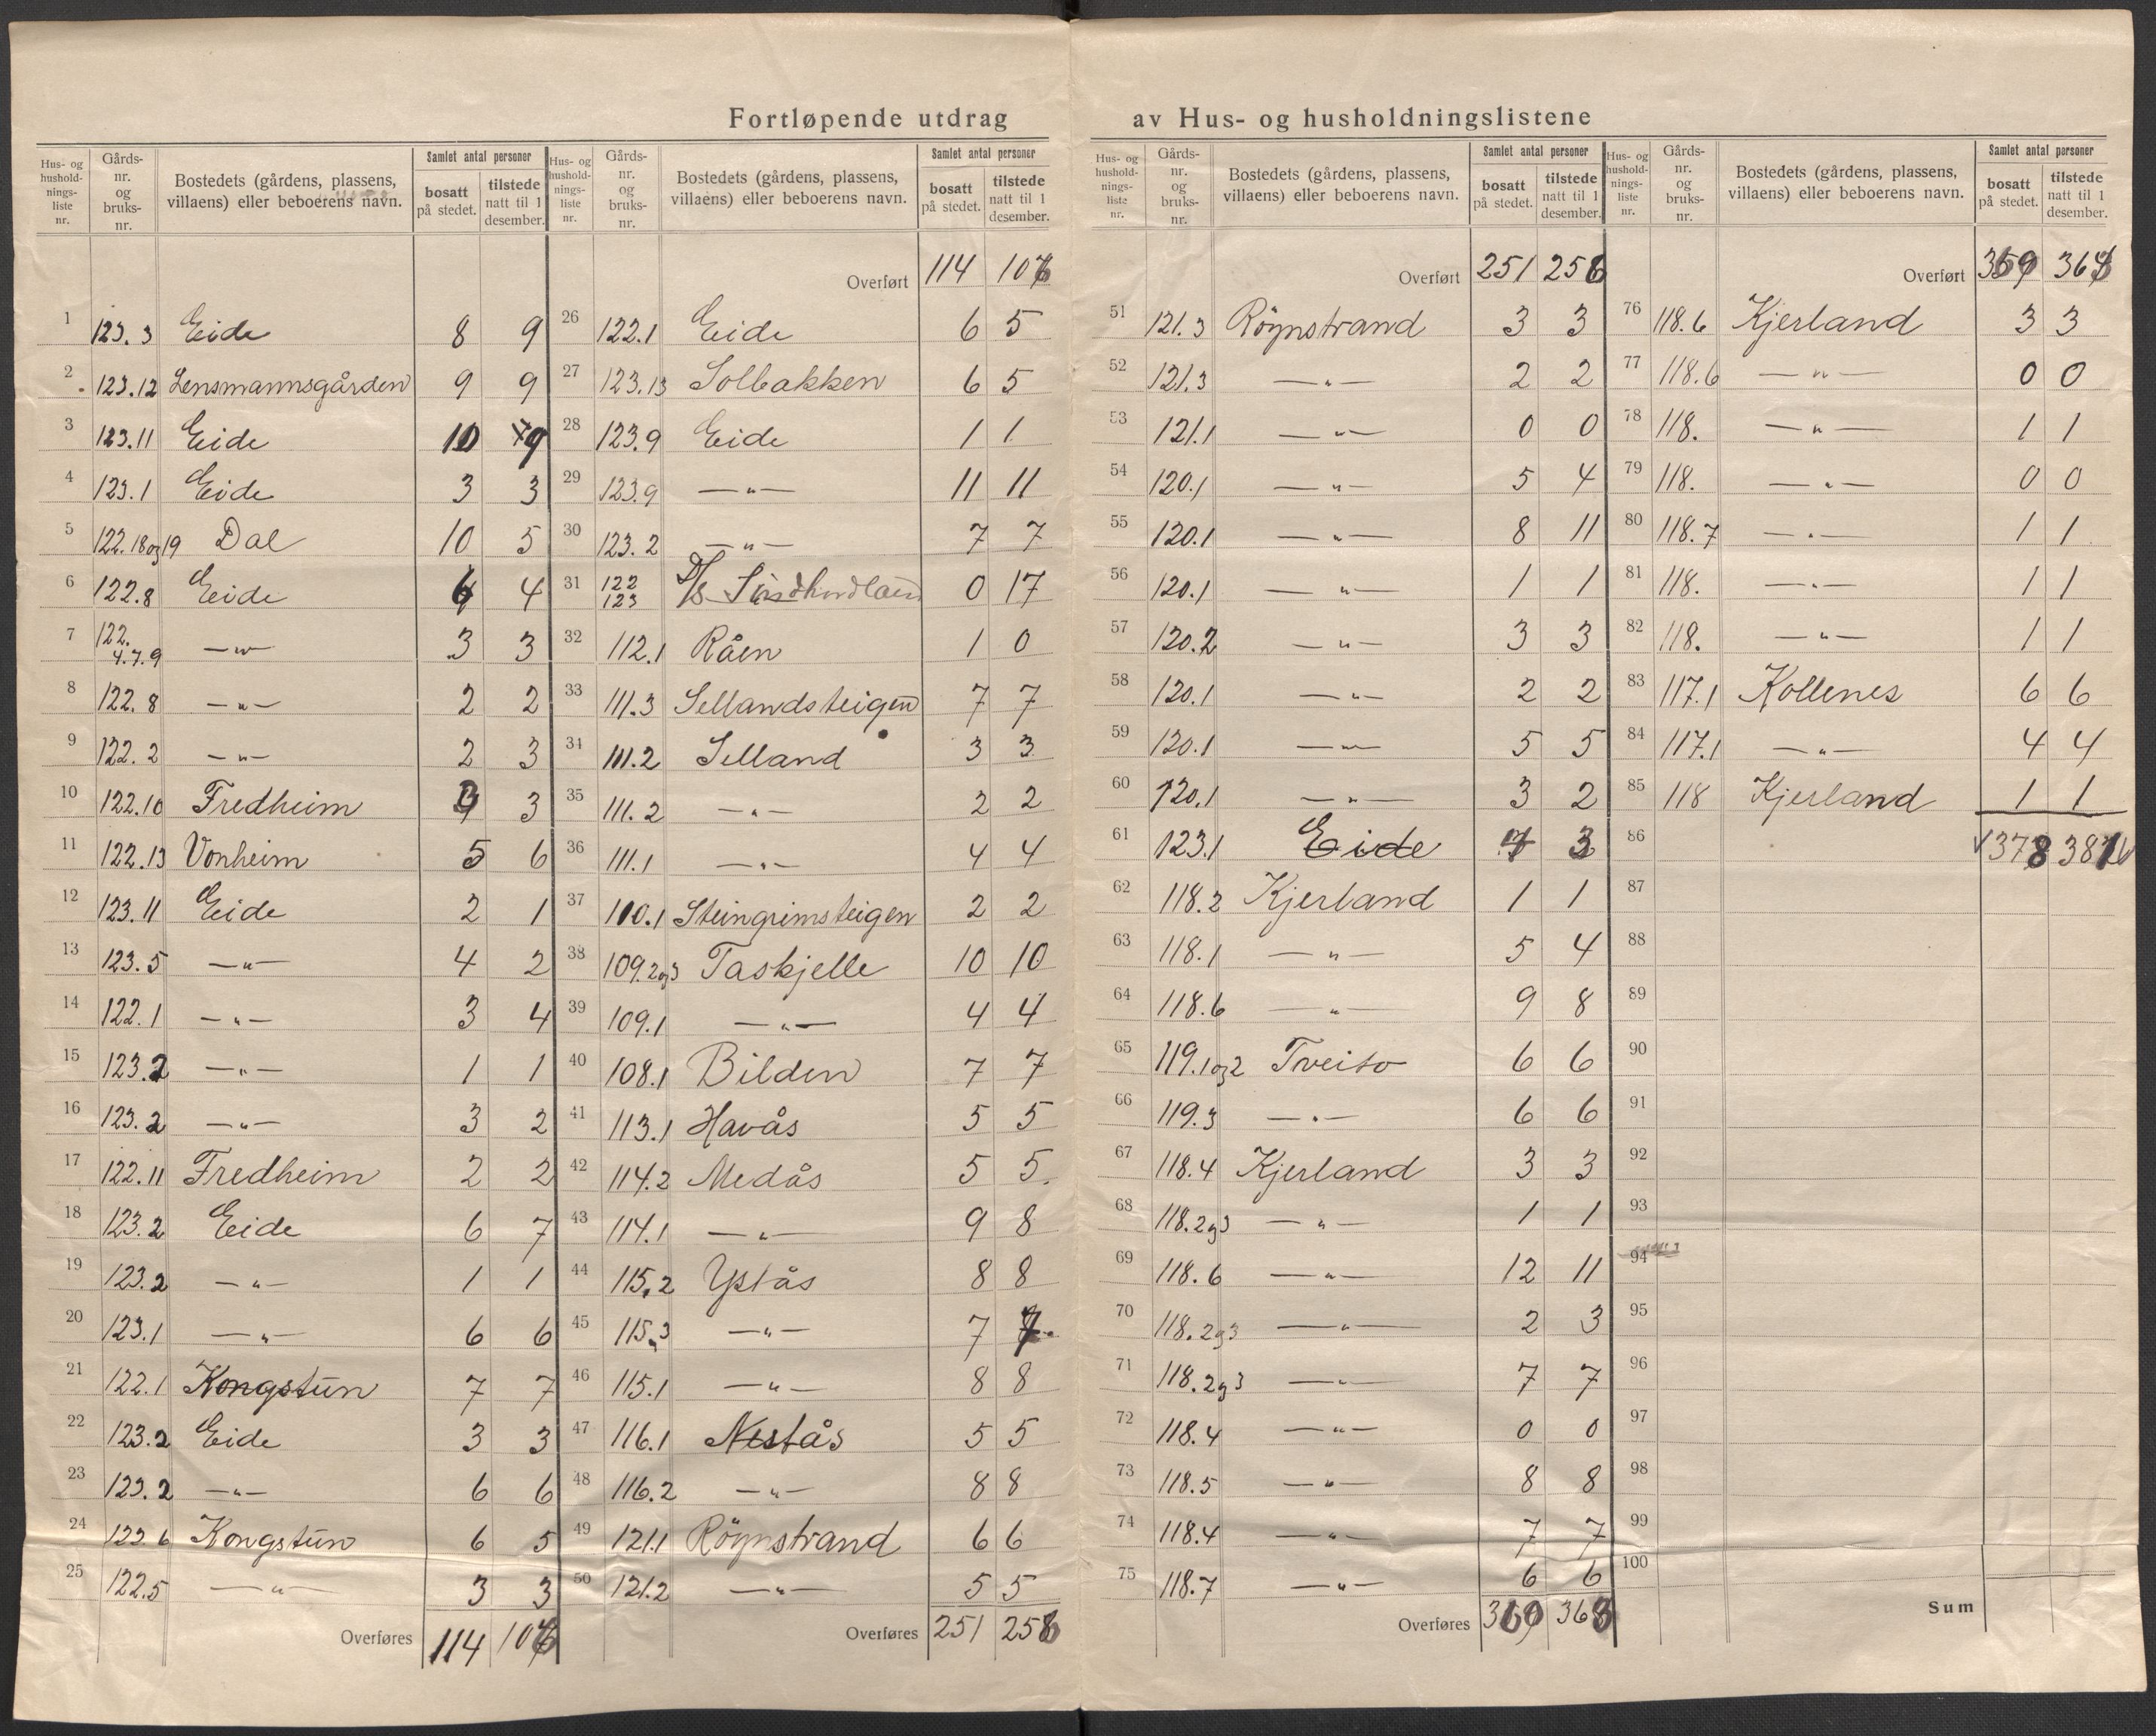 Fortløpende utdrag av Hus- og husholdningslistene
Hus- og hushold-nings-liste nr. | Gårds-nr. og bruks-nr. | Bostedets (gårdens, plassens, villaens) eller beboerens navn. | Samlet antal personer | bosatt på stedet. | tilstede natt til 1 desember.
1 123.3 Eide 8 9
2 123.12 Lensmannsgården 9 9
3 123.11 Eide 10 9
4 123.1 Eide 3 3
5 122.18og19 Dal 10 5
6 122.8 Eide 4
7 122. 4.7.9 —"— 3 3
8 122.8 —"— 2 2
9 122.2 —"— 2 3
10 122.10 Fredheim 3
11 122.13 Vonheim 5 6
12 123.11 Eide 2 1
13 123.5 —"— 4 2
14 122.1 —"— 3 4
15 123.2 —"— 1 1
16 123.2 —"— 3 2
17 122.11 Fredheim 2 2
18 123.2 Eide 6 7
19 123.2 —"— 1 1
20 123.1 —"— 6 6
21 122.1 Kongstun 7 7
22 123.2 Eide 3 3
23 123.2 —"— 6 6
24 122.6 Kongstun 6 5
25 122.5 —"— 3 3
Overføres 114 106
Hus- og hushold-nings-liste nr. | Gårds-nr. og bruks-nr. | Bostedets (gårdens, plassens, villaens) eller beboerens navn. | Samlet antal personer | bosatt på stedet. | tilstede natt til 1 desember.
Overført 114 106
26 122.1 Eide 6 5
27 123.13 Solbakken 6 5
28 123.9 Eide 1 1
29 123.9 —"— 11 11
30 123.2 —"— 7 7
31 122 123 D/S 0 17
32 112.1 Råen 1 0
33 111.3 Sellandsteigen 7 7
34 111.2 Selland 3 3
35 111.2 —"— 2 2
36 111.1 —"— 4 4
37 110.1 Steingrimsteigen 2 2
38 109.2og3 Taskjelle 10 10
39 109.1 —"— 4 4
40 108.1 Bilden 7 7
41 113.1 Havås 5 5
42 114.2 Medås 5 5.
43 114.1 —"— 9 8
44 115.2 Ystås 8 8
45 115.3 —"— 7 7
46 115.1 —"— 8 8
47 116.1 Nestås 5 5
48 116.2 —"— 8 8
49 121.1 Röynstrand 6 6
50 121.2 —"— 5 5
Overføres 251 256
Hus- og hushold-nings-liste nr. | Gårds-nr. og bruks-nr. | Bostedets (gårdens, plassens, villaens) eller beboerens navn. | Samlet antal personer | bosatt på stedet. | tilstede natt til 1 desember.
Overført 251 256
51 121.3 Röynstrand 3 3
52 121.3 —"— 2 2
53 121.1 —"— 0 0
54 120.1 —"— 5 4
55 120.1 —"— 8 11
56 120.1 —"— 1 1
57 120.2 —"— 3 3
58 120.1 —"— 2 2
59 120.1 —"— 5 5
60 120.1 —"— 3 2
61 123.1 Eide 3
62 118.2 Kjerland 1 1
63 118.1 —"— 5 4
64 118.6 —"— 9 8
65 119.1og2 Tveito 6 6
66 119.3 —"— 6 6
67 118.4 Kjerland 3 3
68 118.2g3 —"— 1 1
69 118.6 —"— 12 11
70 118.2g3 —"— 2 3
71 118.2g3 —"— 7 7
72 118.4 —"— 0 0
73 118.5 —"— 8 8
74 118.4 —"— 7 7
75 118.7 —"— 6 6
Overføres 360 368
Hus- og hushold-nings-liste nr. | Gårds-nr. og bruks-nr. | Bostedets (gårdens, plassens, villaens) eller beboerens navn. | Samlet antal personer | bosatt på stedet. | tilstede natt til 1 desember.
Overført
76 118.6 Kjerland 3 3
77 118.6 —"— 0 0
78 118. —"— 1 1
79 118. —"— 0 0
80 118.7 —"— 1 1
81 118. —"— 1 1
82 118. —"— 1 1
83 117.1 Kollenes 6 6
84 117.1 —"— 4 4
85 118 Kjerland 1 1
86 378 381
87
88
89
90
91
92
93
94
95
96
97
98
99
100
Sum